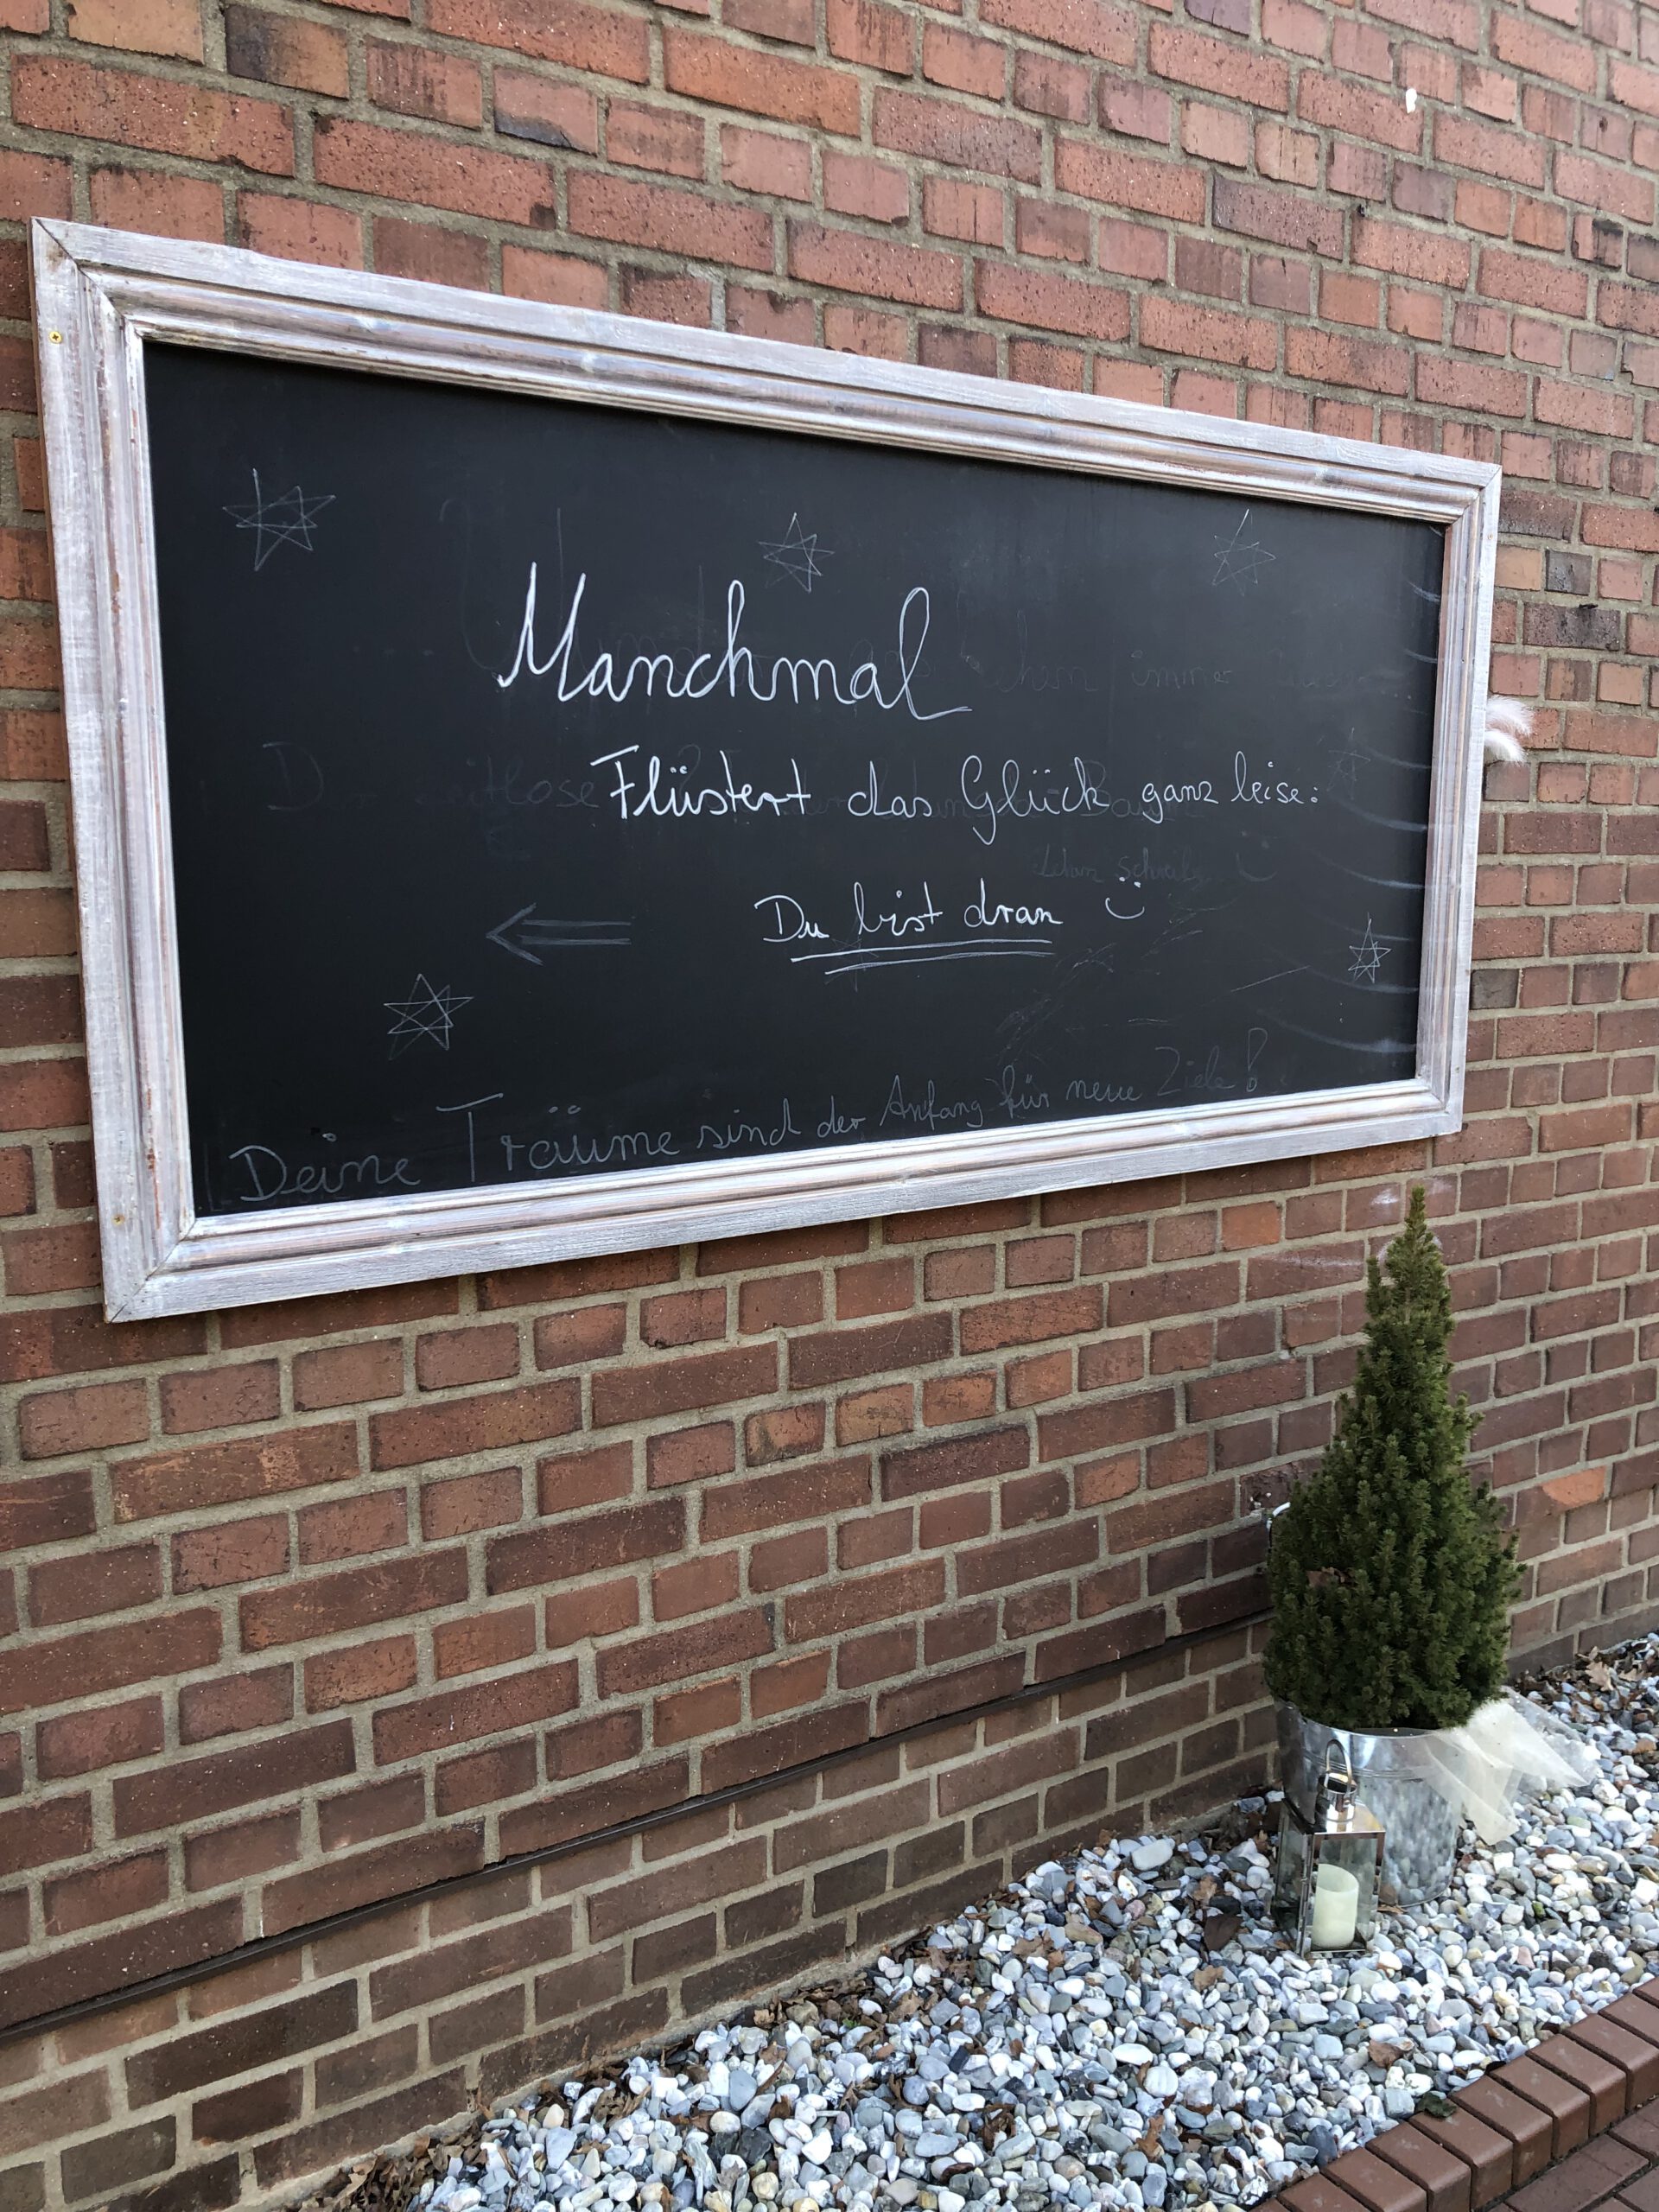 Manchmal
Flüstert das Glück ganz leise:
Du bist dran
Deine Träume sind der Anfang für neue Ziele!